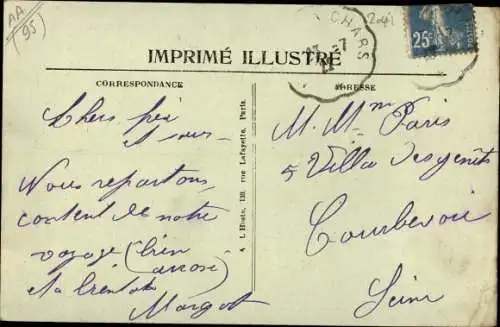 AA
(95)
CHARS
25c
IMPRIMÉ ILLUSTRÉ
CORRESPONDANCE
ADRESSE
Chers
et
Nous repartons
content de notre
voyage (bien
arrosé)
et a bientôt
Margot
A L'Hoste, 139, rue Lafayette, Paris.
M. Mme Paris
5 Villa des genêts
Courbevoie
Seine